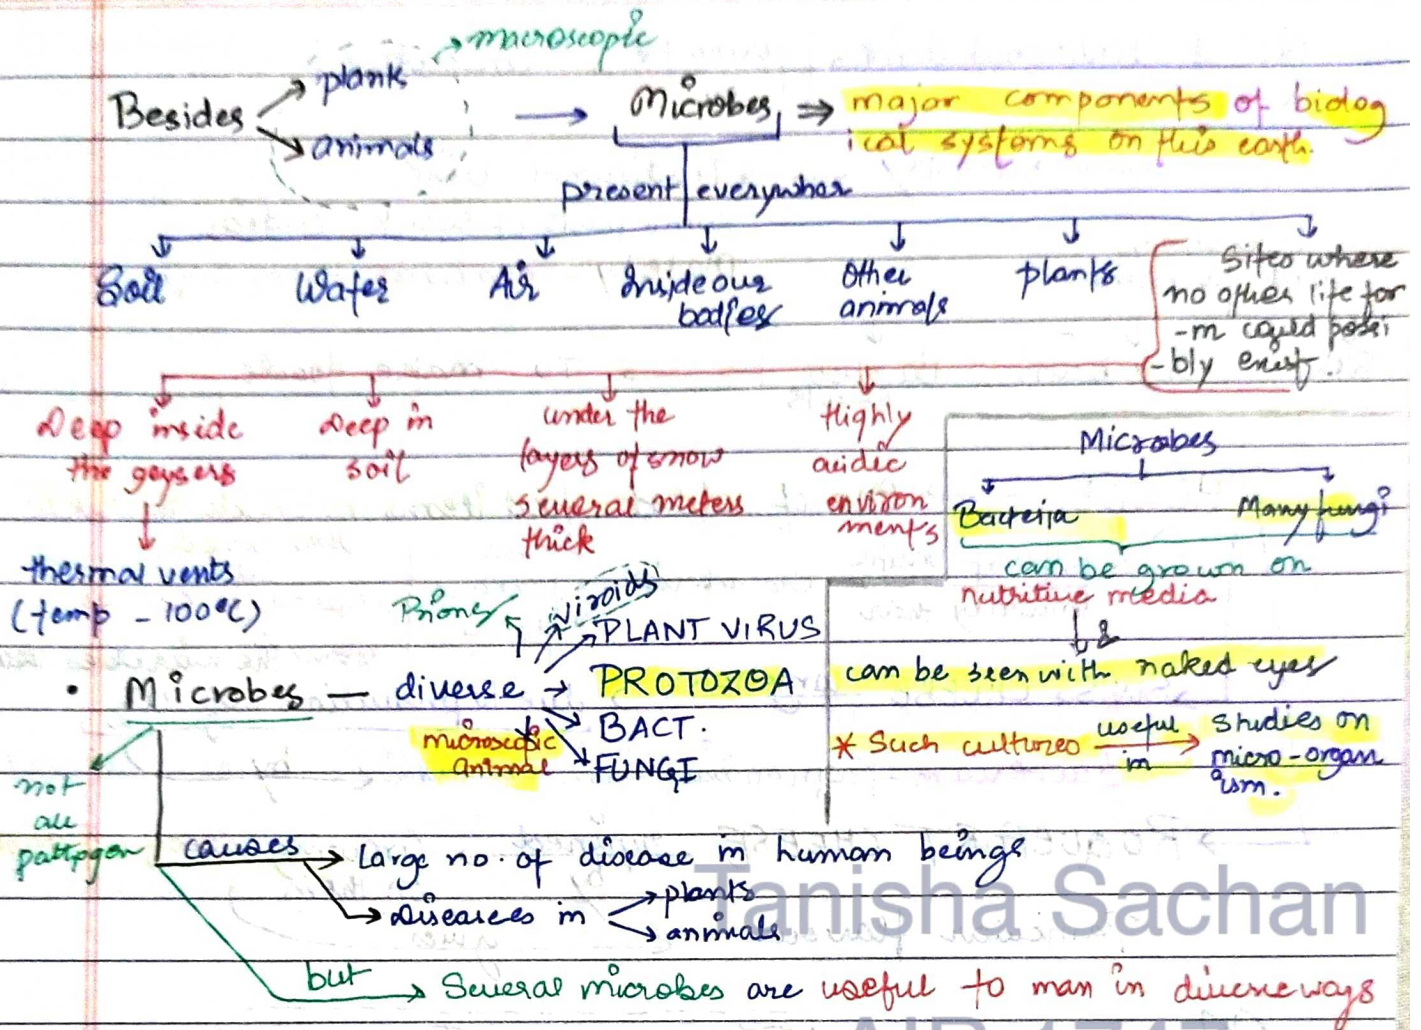 macroscopic
Besides plants
animals
Microbes ⇒ major components of biolog
ical systems on this earth.
present everywher
Soil Water Air Inside our bodies Other animals plants
Sites where
no other life for
-m could possi
-bly exist.
Deep inside
the geysers
Deep in
soil
under the
layers of snow
several meters
thick
Highly
acidic
environ
ments
thermal vents
(temp - 100°C)
Microbes
Bacteria Many fungi
can be grown on
nutritive media
&
can be seen with naked eyes
* Such cultures useful in studies on
micro-organ
ism.
Prions viroids
PLANT VIRUS
• Microbes — diverse → PROTOZOA
BACT.
FUNGI
microscopic
animal
not
all
pathogen
causes → Large no. of disease in human beings
→ Diseases in plants
animals
but → Several microbes are useful to man in diverse ways
Tanisha Sachan